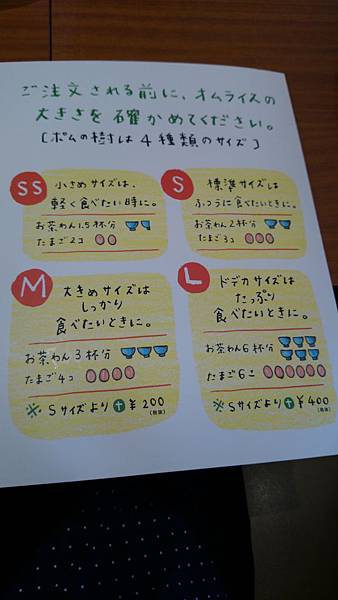 ご注文される前に、オムライスの
大きさを確かめてください。
[ポムの樹は4種類のサイズ]
SS
小さめサイズは、
軽く食べたい時に。
お茶わん1.5杯分
たまご2コ
S
標準サイズは
ふつうに食べたいときに。
お茶わん2杯分
たまご3コ
M
大きめサイズは
しっかり
食べたいときに。
お茶わん3杯分
たまご4コ
※Sサイズより+¥200
(税抜)
L
ドデカサイズは
たっぷり
食べたいときに。
お茶わん6杯分
たまご6コ
※Sサイズより+¥400
(税抜)